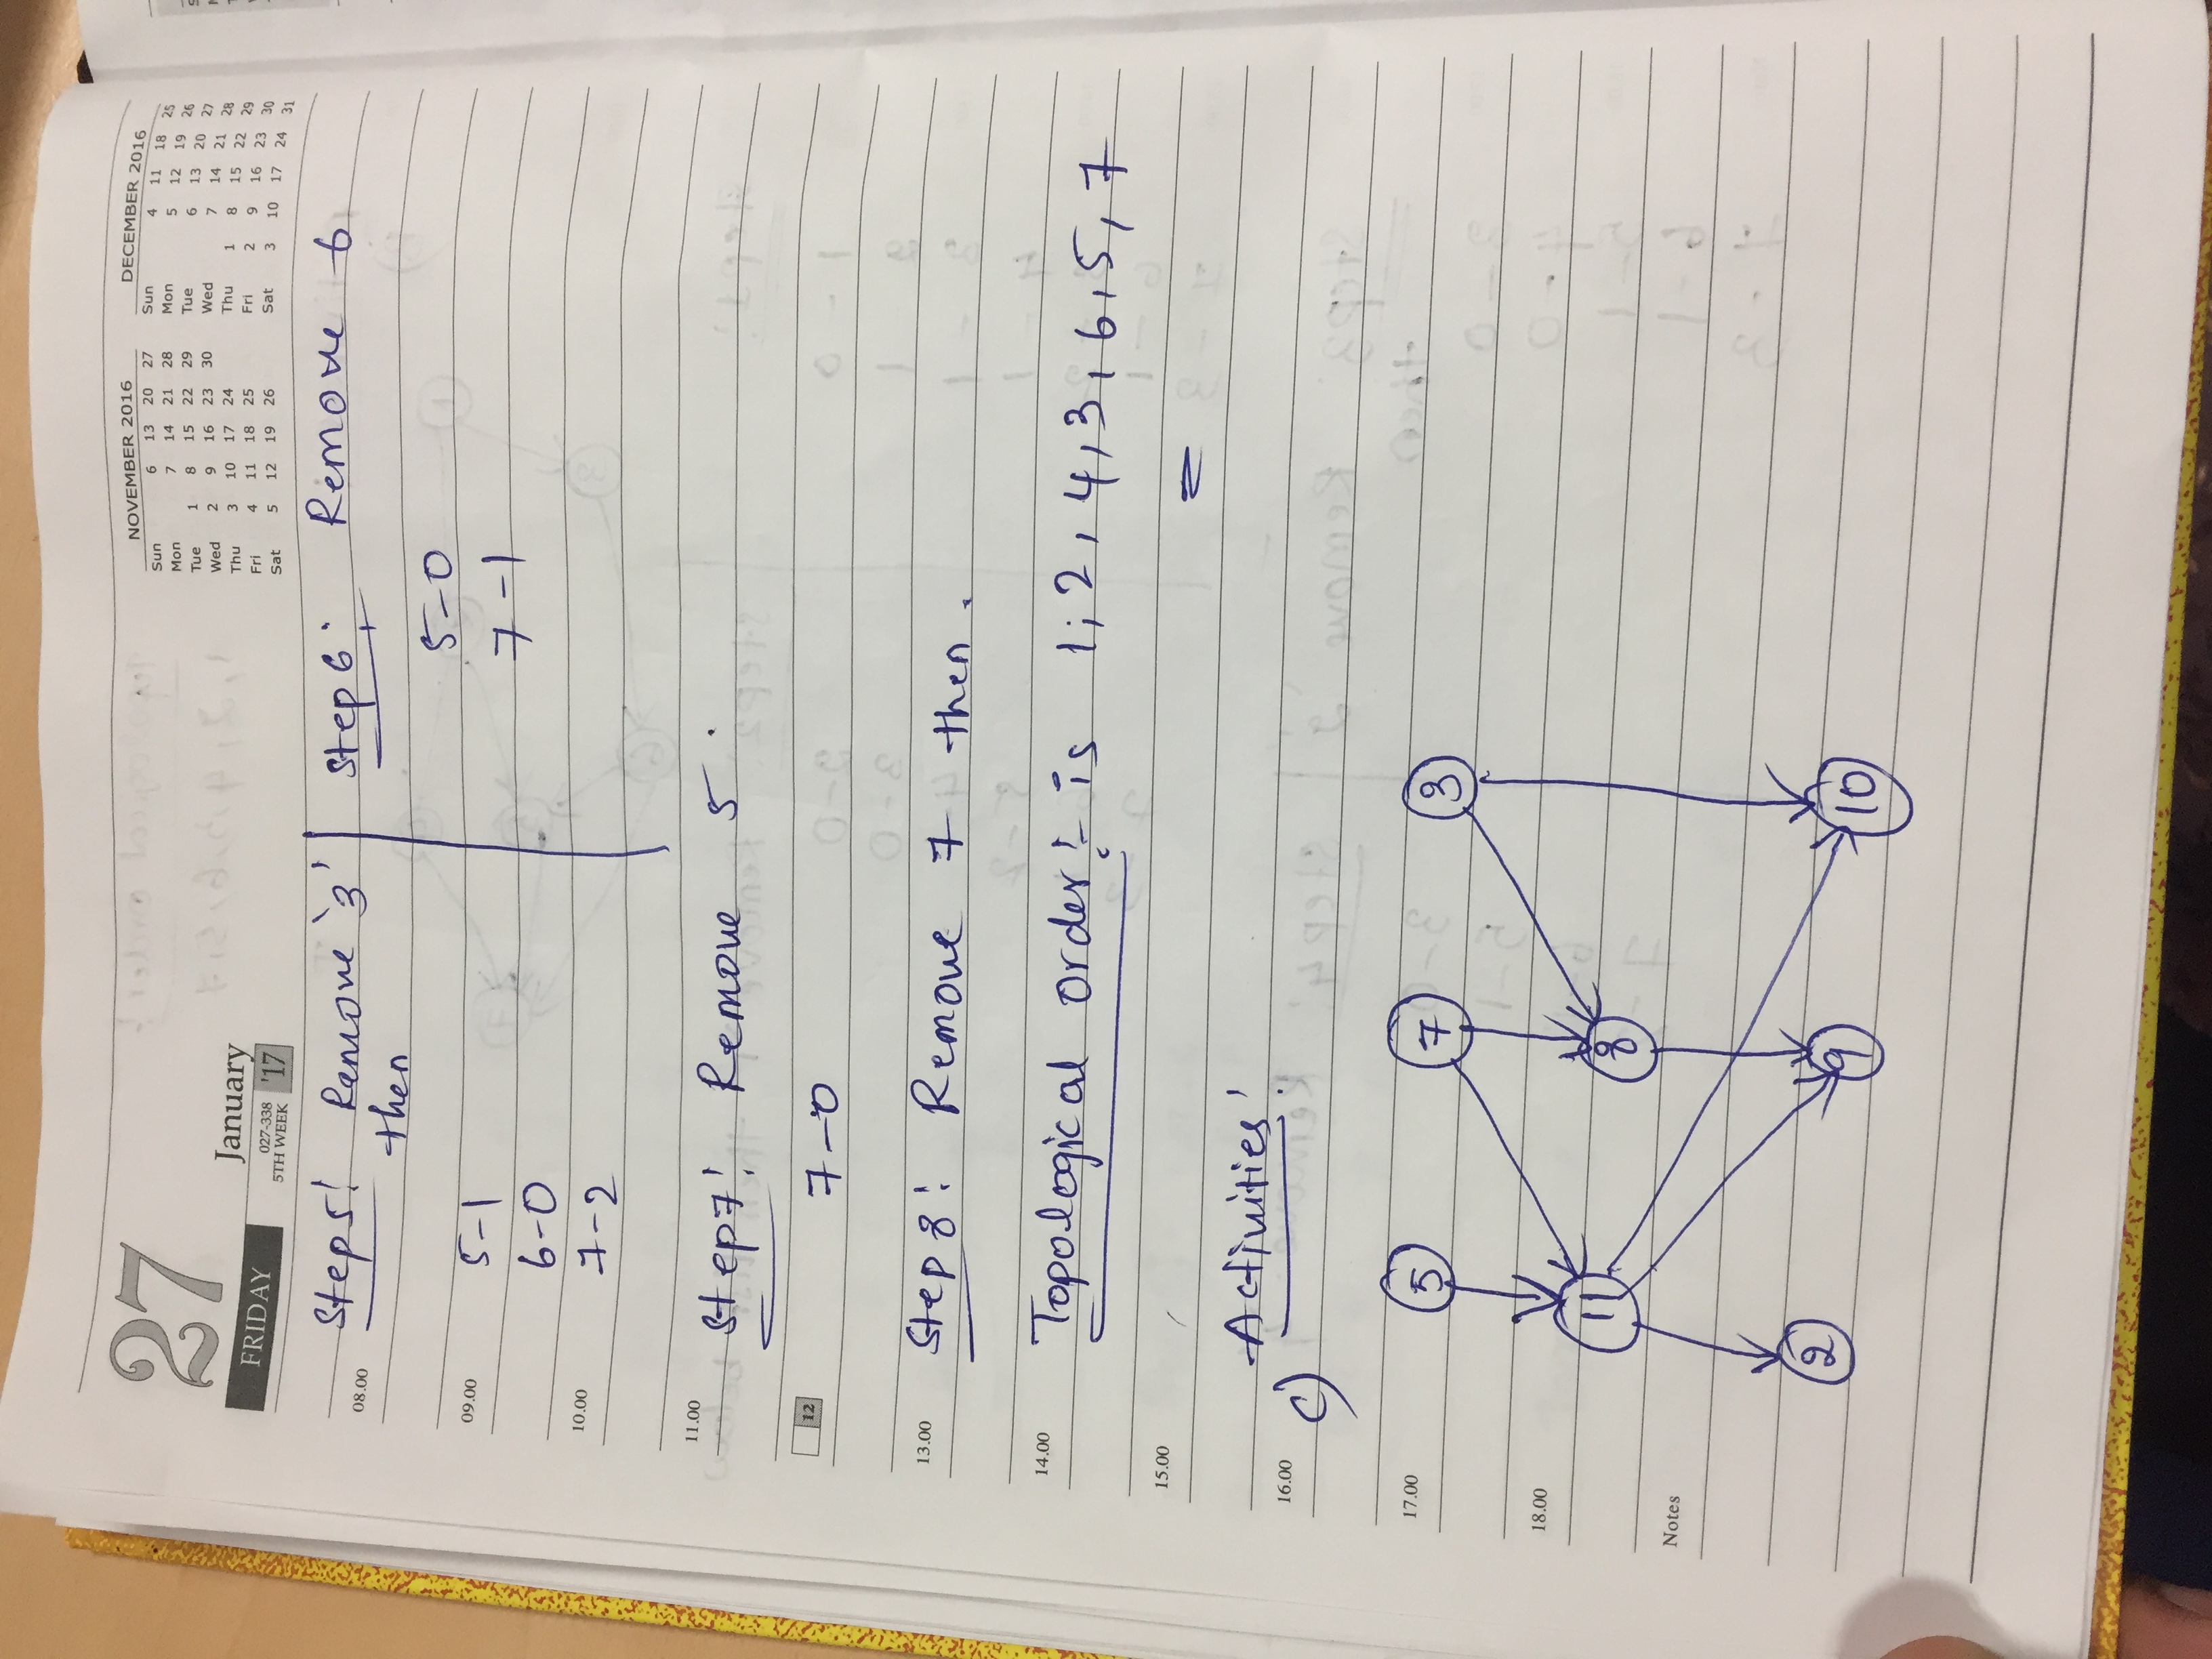 27
FRIDAY
January
027-338
5TH WEEK
'17
NOVEMBER 2016
Sun 6 13 20 27
Mon 7 14 21 28
Tue 1 8 15 22 29
Wed 2 9 16 23 30
Thu 3 10 17 24
Fri 4 11 18 25
Sat 5 12 19 26
DECEMBER 2016
Sun 4 11 18 25
Mon 5 12 19 26
Tue 6 13 20 27
Wed 7 14 21 28
Thu 1 8 15 22 29
Fri 2 9 16 23 30
Sat 3 10 17 24 31
Step5: Remove '3'
then
5-1
6-0
7-2
Step 6: Remove 6
5-0
7-1
08.00
09.00
10.00
11.00
Step7: Remove 5.
12
7-0
13.00
Step 8: Remove 7 then.
14.00
Topological order:- is 1, 2, 4, 3, 6, 5, 7
15.00
Activities:
16.00
c)
17.00
5 7 3
18.00
11 8
Notes
2 9 10